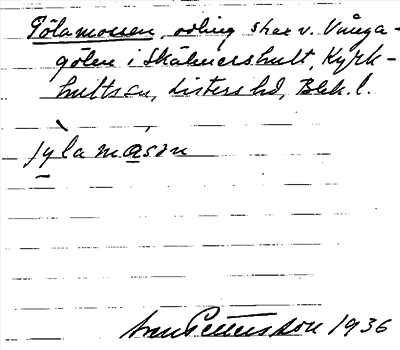 Gölamossen, odling strax v. Vånga-
gölen i Skälmershult, Kyrk-
hults sn, Listers hd, Blek. l.
jỳlamåsən
Pettersson 1936